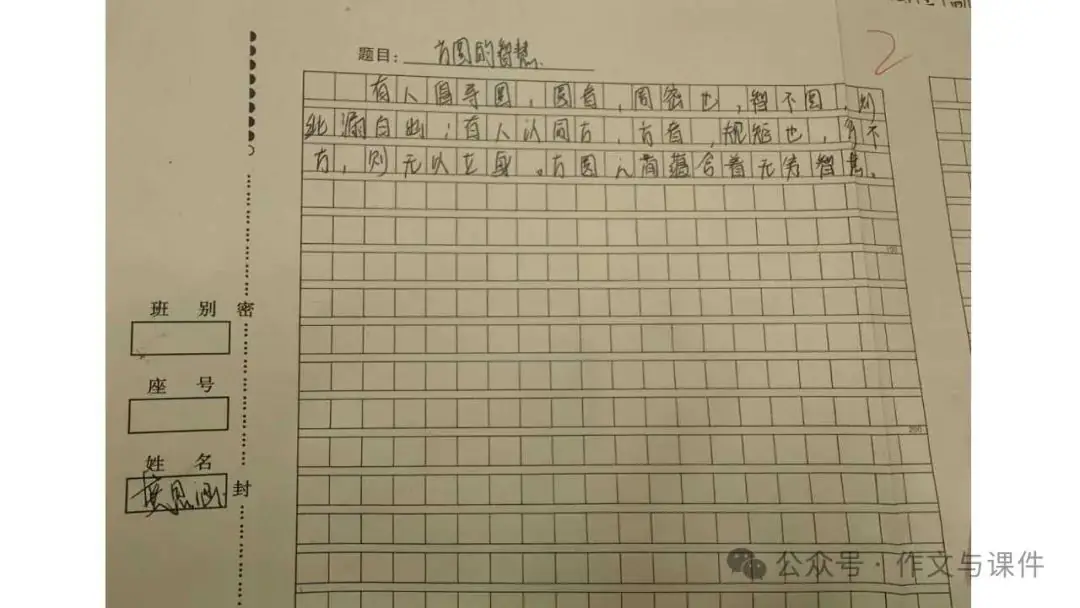 题目：方圆的智慧
2
有人倡导圆，圆者，周密也，智不圆，则
漏白出；有人认同方，方者，规矩也，不
方，则无以立身。方圆之间蕴含着无穷智慧。
100
200
班别
座号
姓名
密
封
公众号·作文与课件